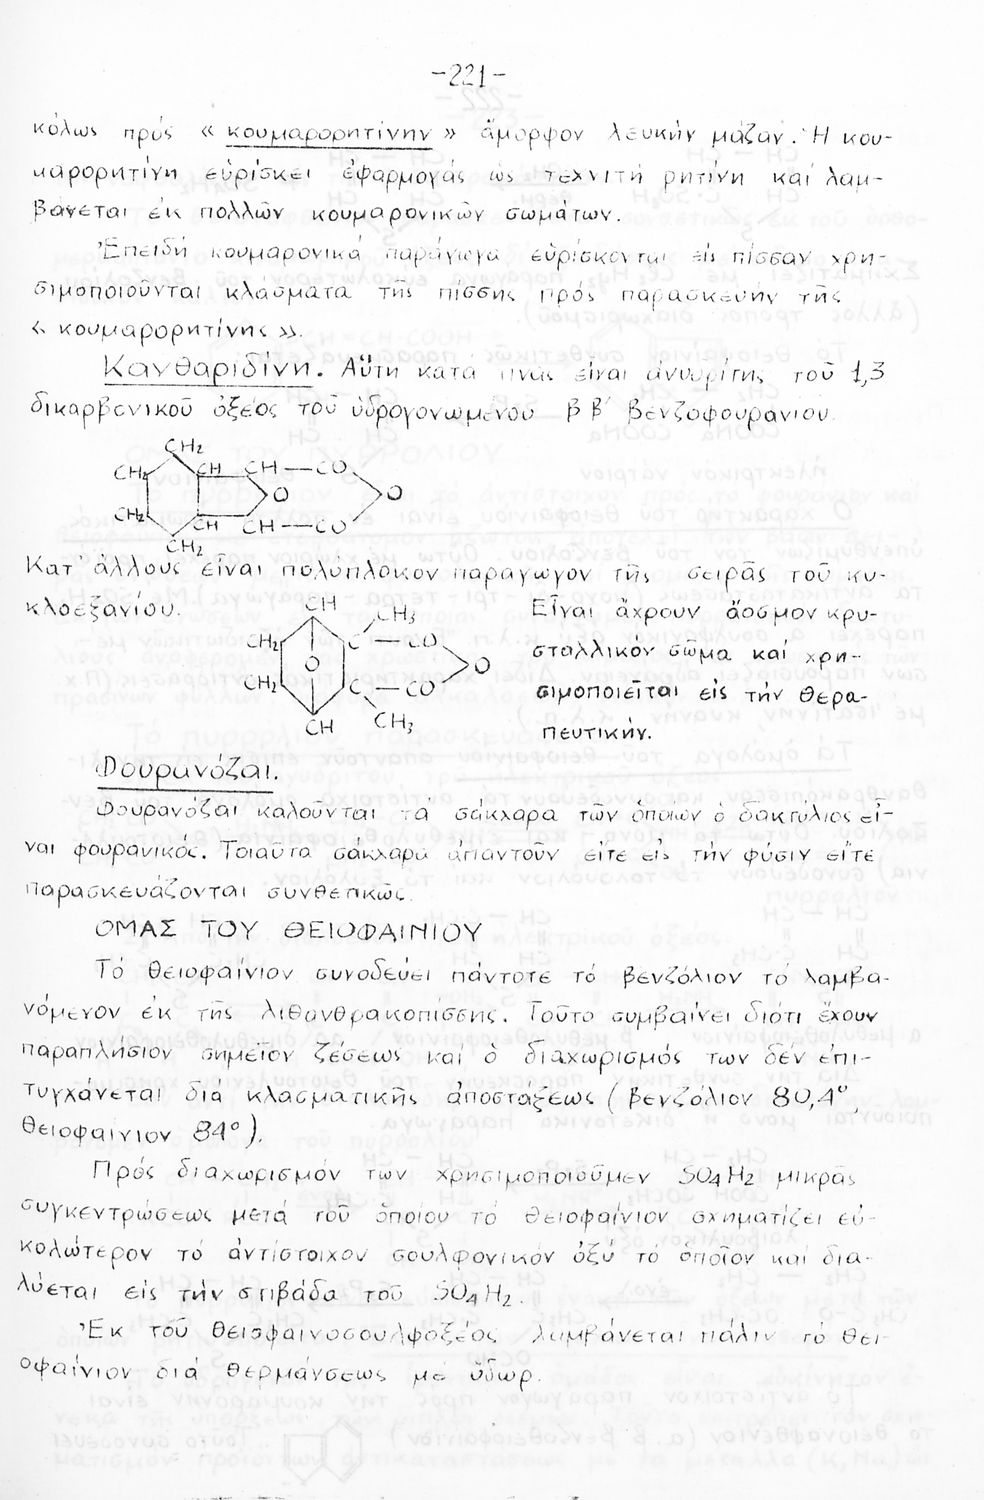 -221-
κόλως πρός « κουμαρορητίνην » ἄμορφον λευκήν μάζαν. Ἡ κου-
μαρορητίνη εὑρίσκει ἐφαρμογάς ὡς τεχνιτή ρητίνη καί λαμ-
βάνεται ἐκ πολλῶν κουμαρονικῶν σωμάτων.
Ἐπειδή κουμαρονικά παράγωγα εὑρίσκονται εἰς πίσσαν χρη-
σιμοποιοῦνται κλάσματα τῆς πίσσης πρός παρασκευήν τῆς
« κουμαρορητίνης ».
Κανθαριδίνη. Αὕτη κατά τινάς εἶναι ἀνυδρίτης τοῦ 1,3
δικαρβενικοῦ ὀξέος τοῦ ὑδρογονωμένου β β΄ βενζοφουρανίου.
CH2
CH2 CH CH — CO
O O
CH2 CH CH — CO
CH2
Κατ' ἄλλους εἶναι πολύπλοκον παράγωγον τῆς σειρᾶς τοῦ κυ-
κλοεξανίου.
CH
CH3
CH2 C — CO
O O
CH2 C — CO
CH CH3
Εἶναι ἄχρουν ἄοσμον κρυ-
σταλλικόν σῶμα καί χρη-
σιμοποιεῖται εἰς τήν θερα-
πευτικήν.
Φουρανόζαι.
Φουρανόζαι καλοῦνται τά σάκχαρα τῶν ὁποίων ὁ δακτύλιος εἶ-
ναι φουρανικός. Τοιαῦτα σάκχαρα ἀπαντοῦν εἴτε εἰς τήν φύσιν εἴτε
παρασκευάζονται συνθετικῶς.
ΟΜΑΣ ΤΟΥ ΘΕΙΟΦΑΙΝΙΟΥ
Τό θειοφαίνιον συνοδεύει πάντοτε τό βενζόλιον τό λαμβα-
νόμενον ἐκ τῆς λιθανθρακοπίσσης. Τοῦτο συμβαίνει διότι ἔχουν
παραπλήσιον σημεῖον ζέσεως καί ὁ διαχωρισμός των δέν ἐπι-
τυγχάνεται διά κλασματικῆς ἀποστάξεως (βενζόλιον 80,4°,
θειοφαίνιον 84°).
Πρός διαχωρισμόν των χρησιμοποιοῦμεν SO4H2 μικρᾶς
συγκεντρώσεως μετά τοῦ ὁποίου τό θειοφαίνιον σχηματίζει εὐ-
κολώτερον τό ἀντίστοιχον σουλφονικόν ὀξύ τό ὁποῖον καί δια-
λύεται εἰς τήν στιβάδα τοῦ SO4H2.
Ἐκ τοῦ θειοφαινοσουλφοξέος λαμβάνεται πάλιν τό θει-
οφαίνιον διά θερμάνσεως μέ ὕδωρ.